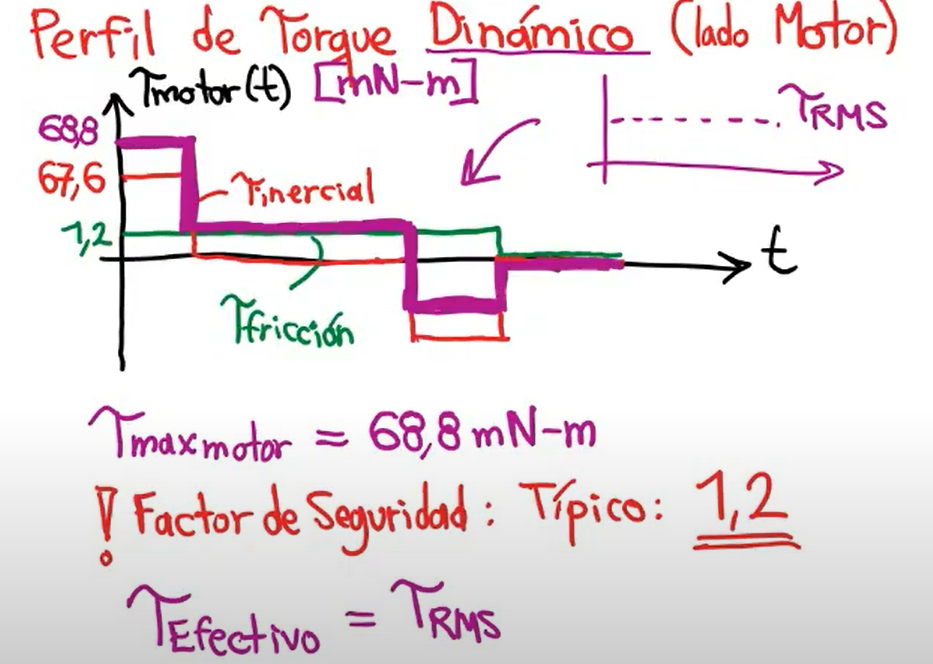 Perfil de Torque Dinámico (lado Motor)
τmotor(t) [mN-m]
τRMS
68,8
67,6
τinercial
1,2
t
τfricción
τmaxmotor = 68,8 mN-m
! Factor de Seguridad: Típico: 1,2
τEfectivo = τRMS